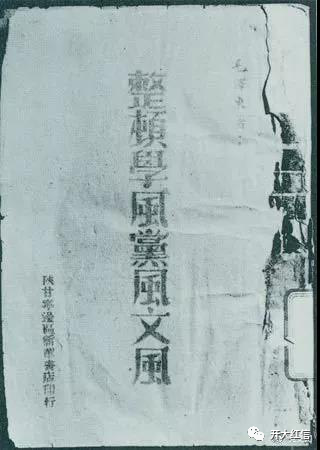 毛澤東著
整頓學風黨風文風
陝甘寧邊區新華書店印行
开大红信